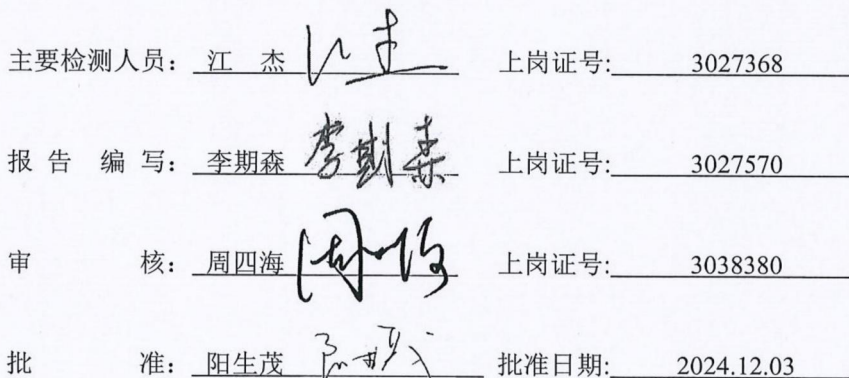 主要检测人员: 江 杰 江杰 上岗证号: 3027368
报 告 编 写: 李期森 李期森 上岗证号: 3027570
审 核: 周四海 周四海 上岗证号: 3038380
批 准: 阳生茂 阳生茂 批准日期: 2024.12.03